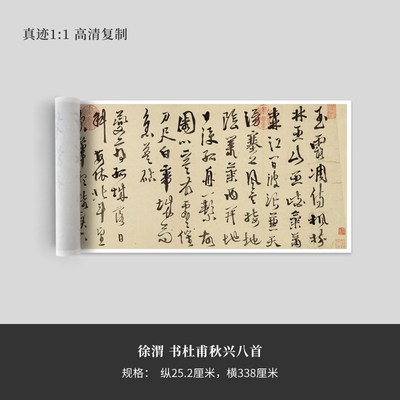 真迹1:1 高清复制
玉露凋傷楓樹
林巫山巫峽氣蕭
森江間波浪兼天
湧塞上風雲接地
陰叢菊兩開他
日淚孤舟一繫故
園心寒衣處處催
刀尺白帝城高
急暮砧
夔府孤城落日
斜每依北斗望
徐渭 书杜甫秋兴八首
规格： 纵25.2厘米，横338厘米